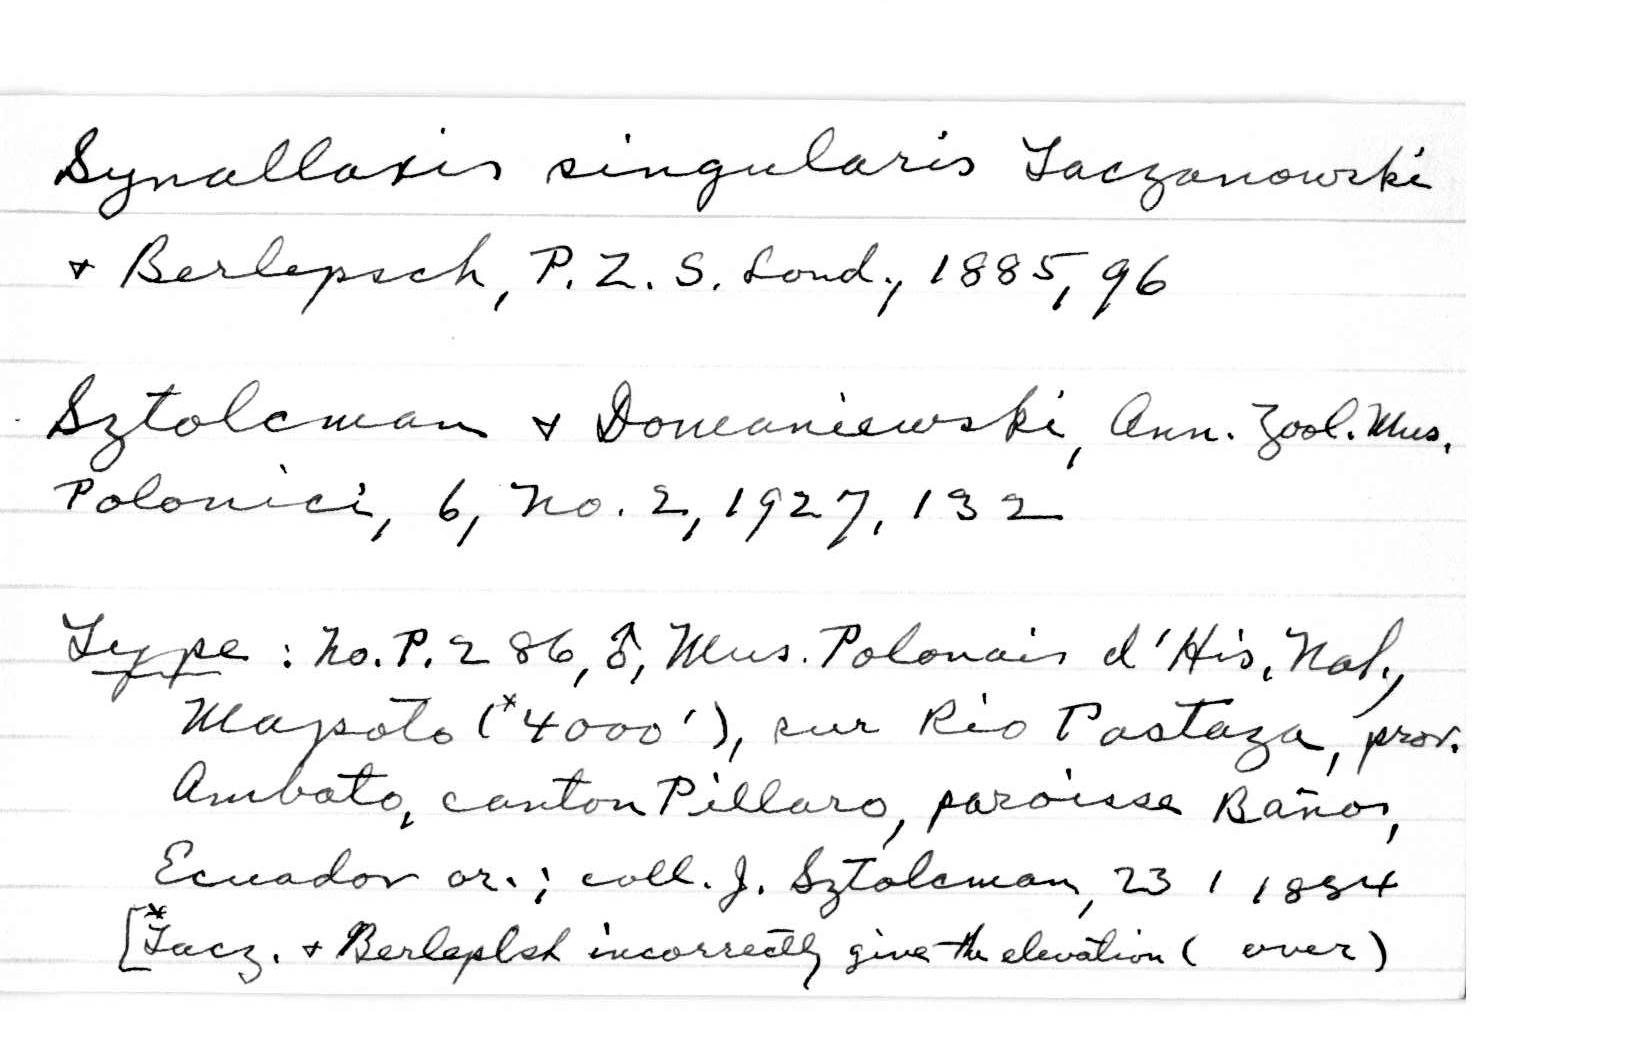 Synallaxis singularis Taczanowski
& Berlepsch, P. Z. S. Lond., 1885, 96
Sztolcman & Domaniewski, Ann. Zool. Mus.
Polonici, 6, No. 2, 1927, 132
Type : No. P. 286, ♂, Mus. Polonais d'His. Nat.,
Mapoto (*4000'), sur Rio Pastaza, prov.
Ambato, canton Pillaro, paroisse Baños,
Ecuador or.; coll. J. Sztolcman, 23 1 1884
[*Tacz. & Berlepsch incorrectly give the elevation ( over )